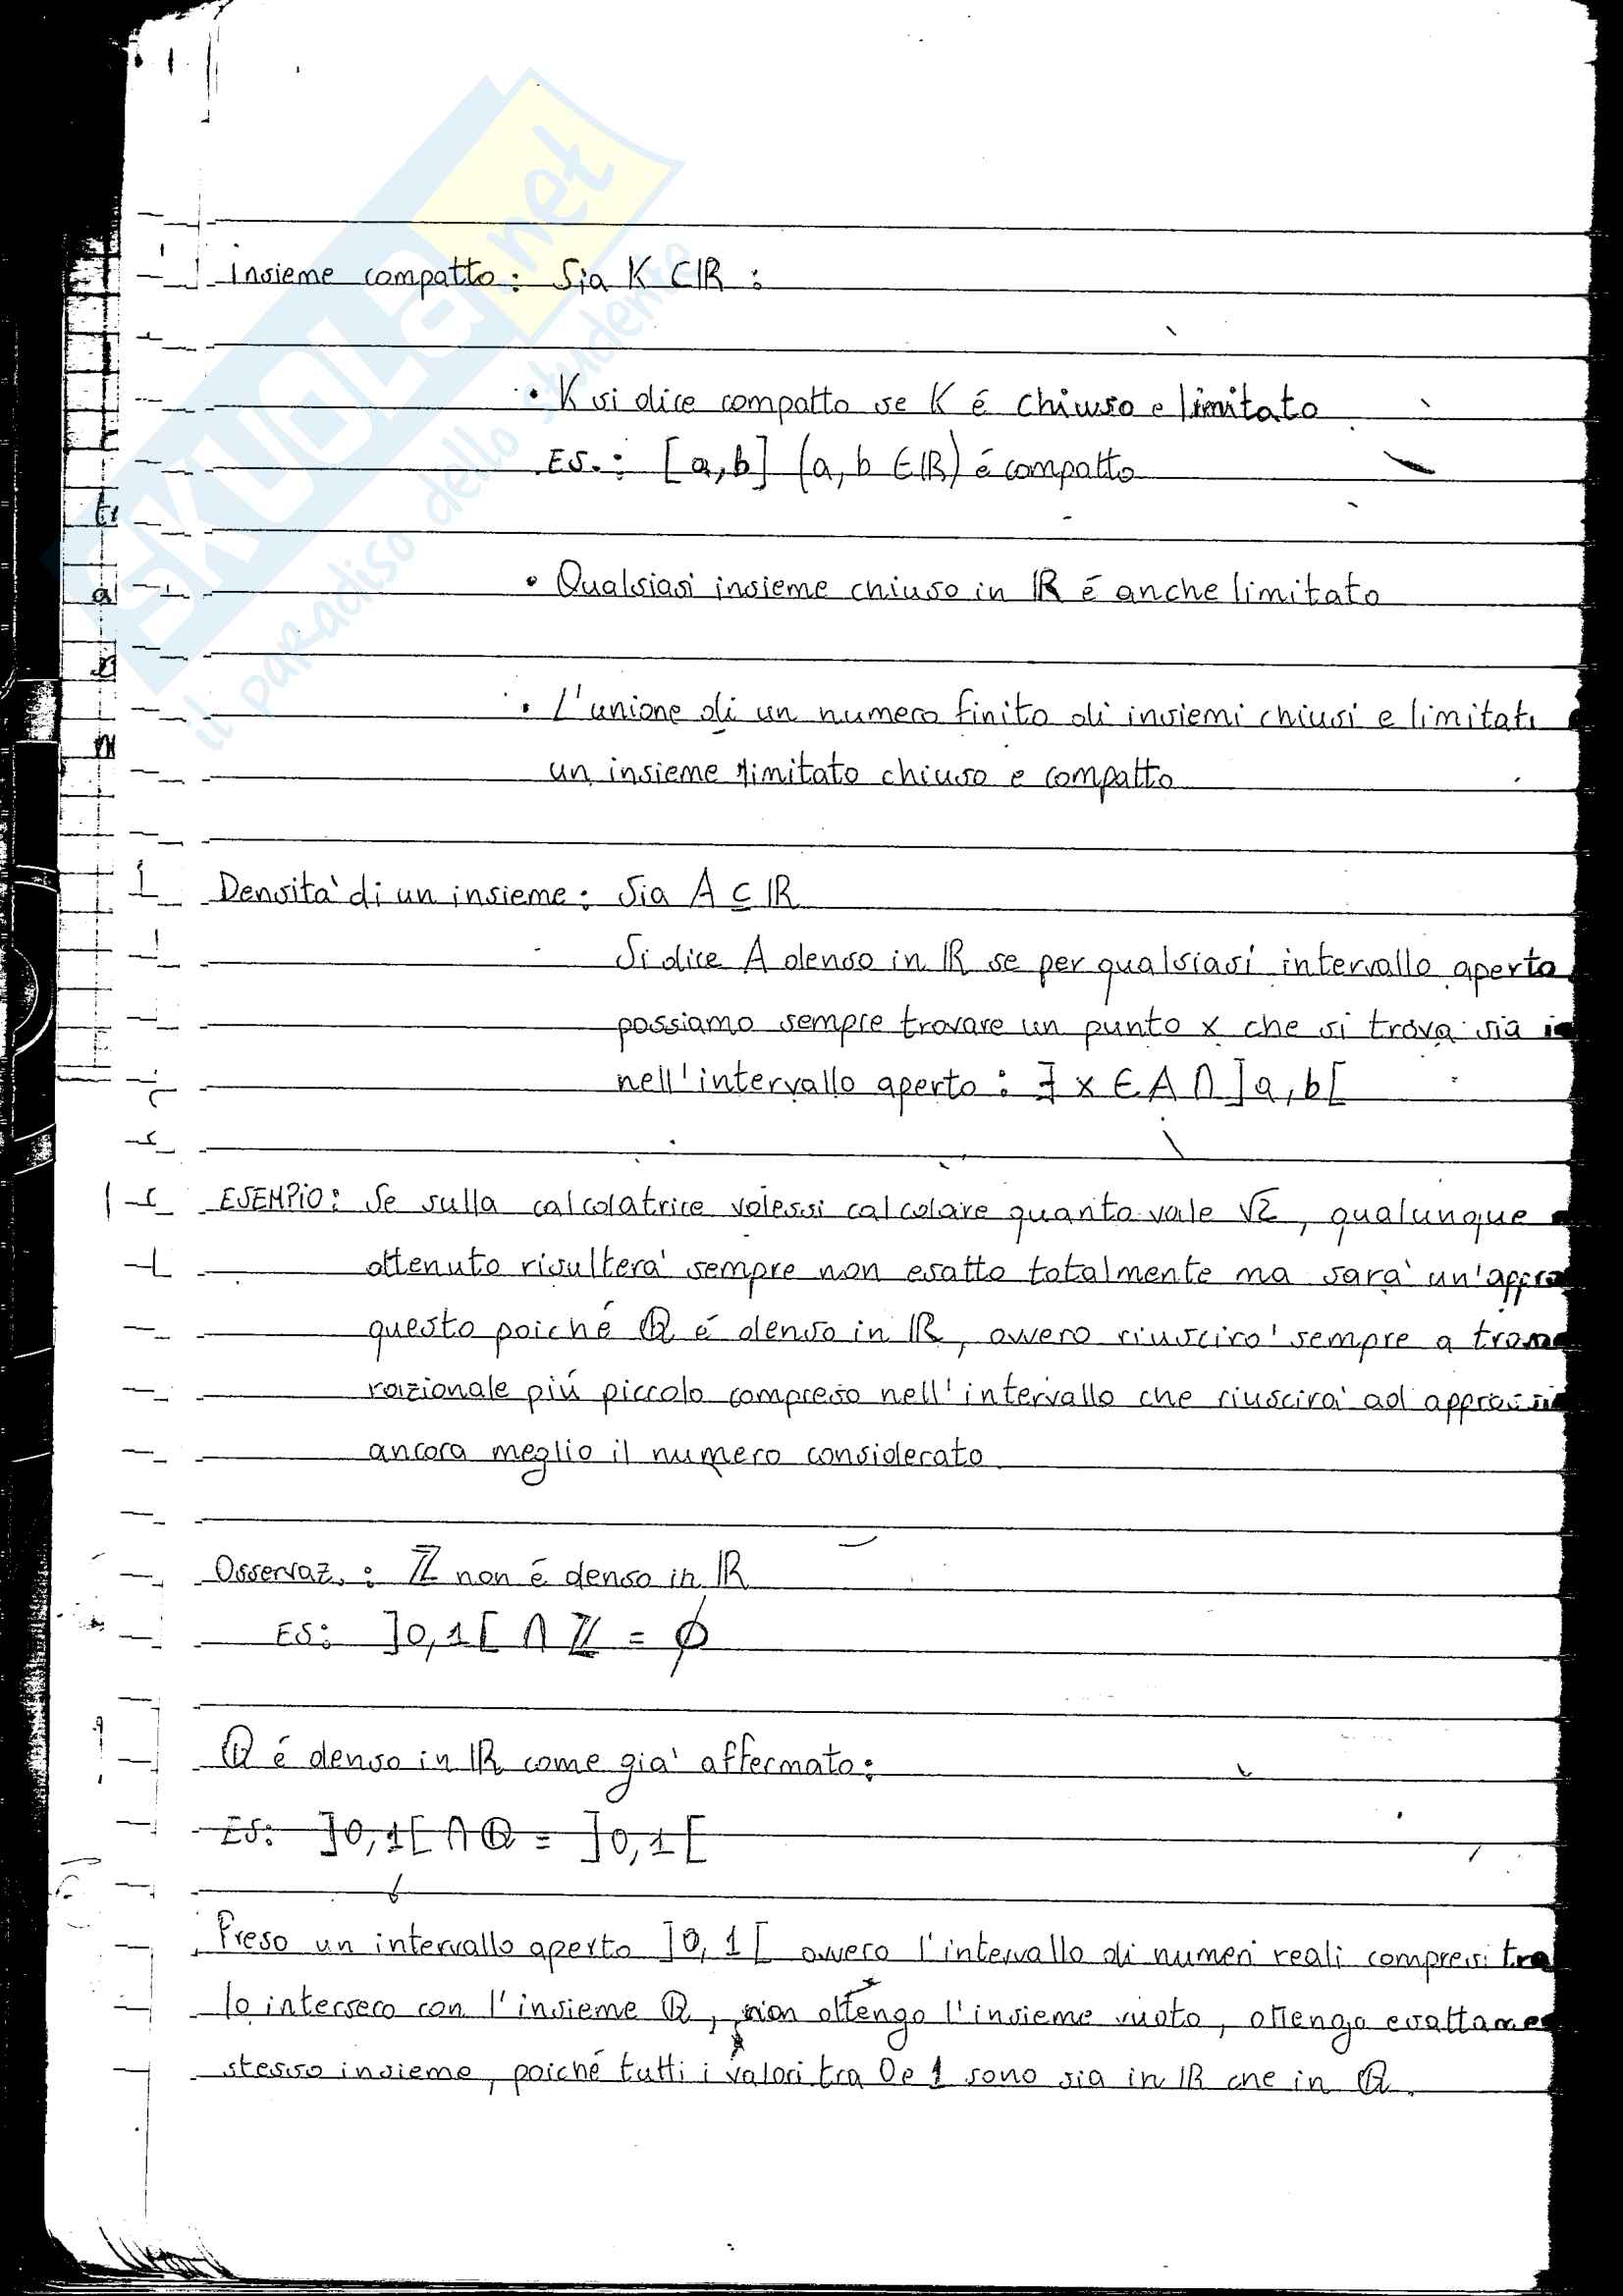 Insieme compatto: Sia K ⊂ ℝ :
• K si dice compatto se K é chiuso e limitato
ES.: [a,b] (a, b ∈ ℝ) é compatto
• Qualsiasi insieme chiuso in ℝ é anche limitato
• L'unione di un numero finito di insiemi chiusi e limitati
un insieme limitato chiuso e compatto
Densita' di un insieme: Sia A ⊆ ℝ
Si dice A denso in ℝ se per qualsiasi intervallo aperto
possiamo sempre trovare un punto x che si trova sia
nell'intervallo aperto: ∃ x ∈ A ∩ ]a, b[
ESEMPIO: Se sulla calcolatrice volessi calcolare quanto vale √2, qualunque
ottenuto risultera' sempre non esatto totalmente ma sara'
questo poiché ℚ é denso in ℝ, ovvero riusciro' sempre a
razionale piú piccolo compreso nell'intervallo che riuscira' ad
ancora meglio il numero considerato
Osservaz.: ℤ non é denso in ℝ
ES: ]0,1[ ∩ ℤ = ∅
ℚ é denso in ℝ come gia' affermato:
ES: ]0,1[ ∩ ℚ = ]0,1[
↓
Preso un intervallo aperto ]0,1[ ovvero l'intervallo di numeri reali compresi tra
lo interseco con l'insieme ℚ, non ottengo l'insieme vuoto, ottengo
stesso insieme, poiché tutti i valori tra 0 e 1 sono sia in ℝ che in ℚ.
SKUOLA.net
il paradiso dello studente